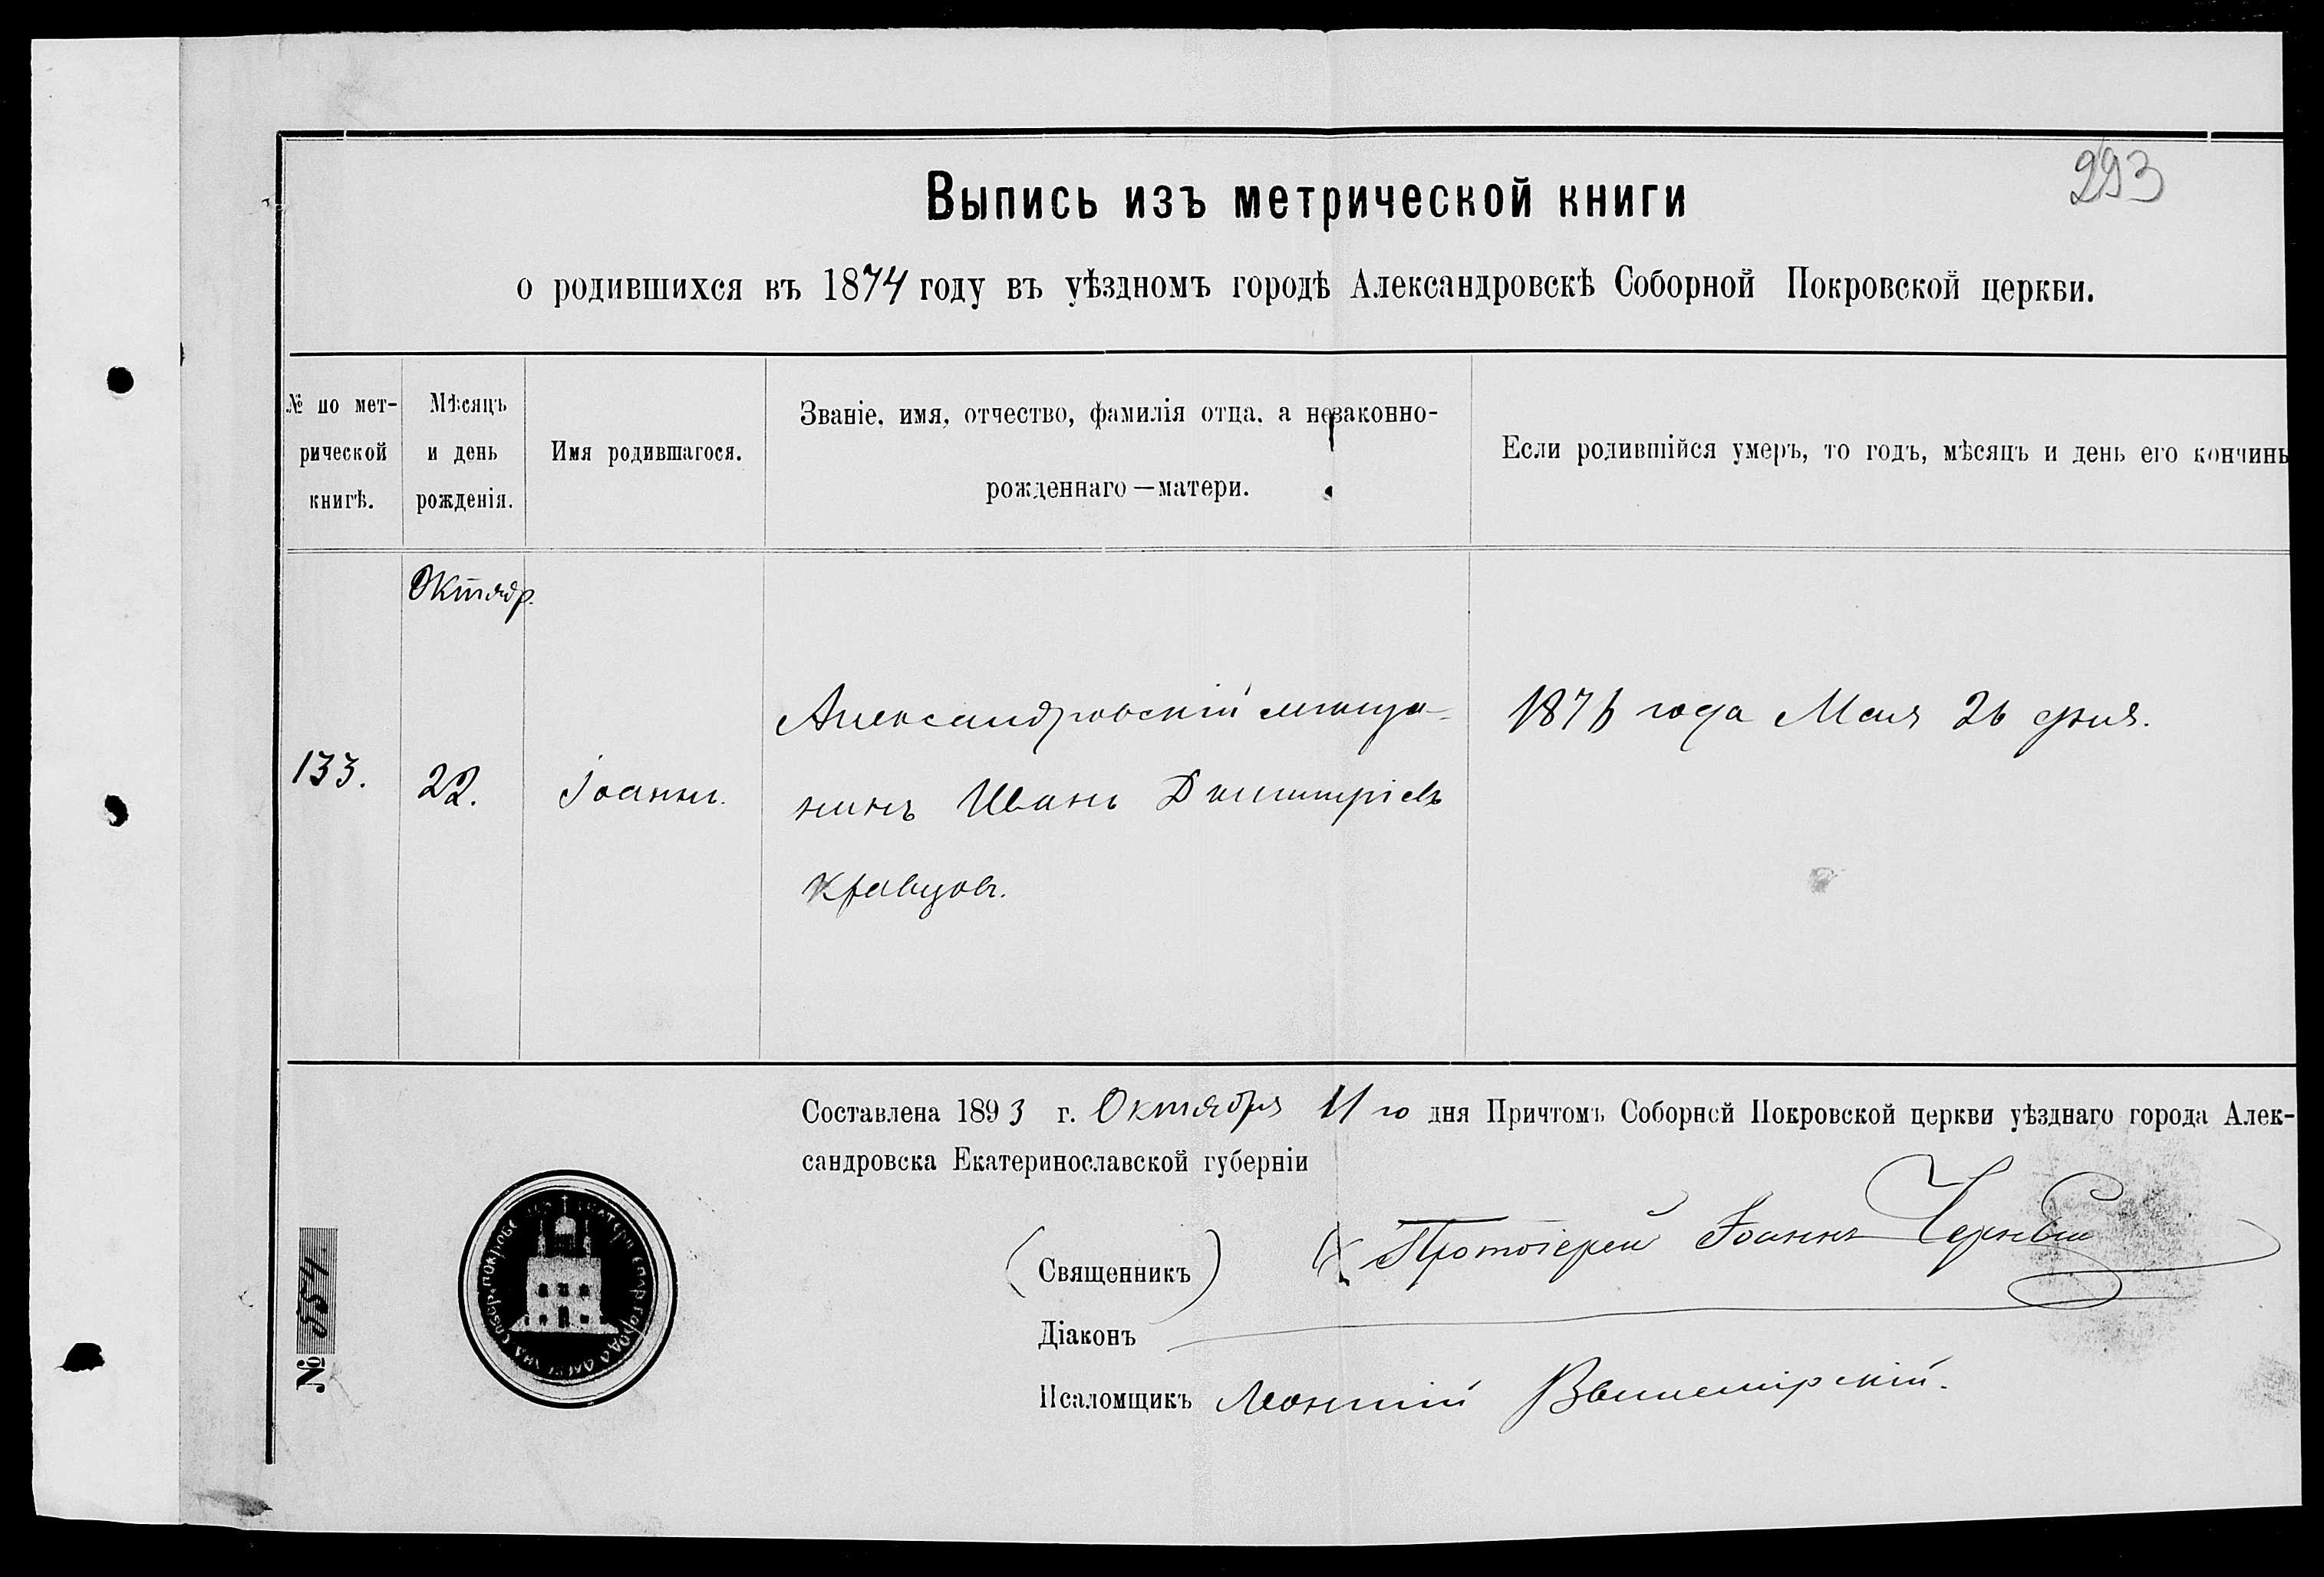 293
Выпись изъ метрической книги
о родившихся въ 1874 году въ уѣздномъ городѣ Александровскѣ Соборной Покровской церкви.
№ по мет-
рической
книгѣ.
Мѣсяцъ
и день
рожденія.
Имя родившагося.
Званіе, имя, отчество, фамилія отца, а незаконно-
рожденнаго — матери.
Если родившійся умеръ, то годъ, мѣсяцъ и день его кончины
Октябр.
133.
22.
Іоаннъ.
Александровскій мѣща-
нинъ Иванъ Димитріевъ
Кравцовъ.
1876 года Мая 26 дня.
Составлена 1893 г. Октября 11 го дня Причтомъ Соборной Покровской церкви уѣзднаго города Алек-
сандровска Екатеринославской губерніи
(Священникъ) Протоіерей Іоаннъ
Діаконъ
Псаломщикъ Леонтій
№ 554.